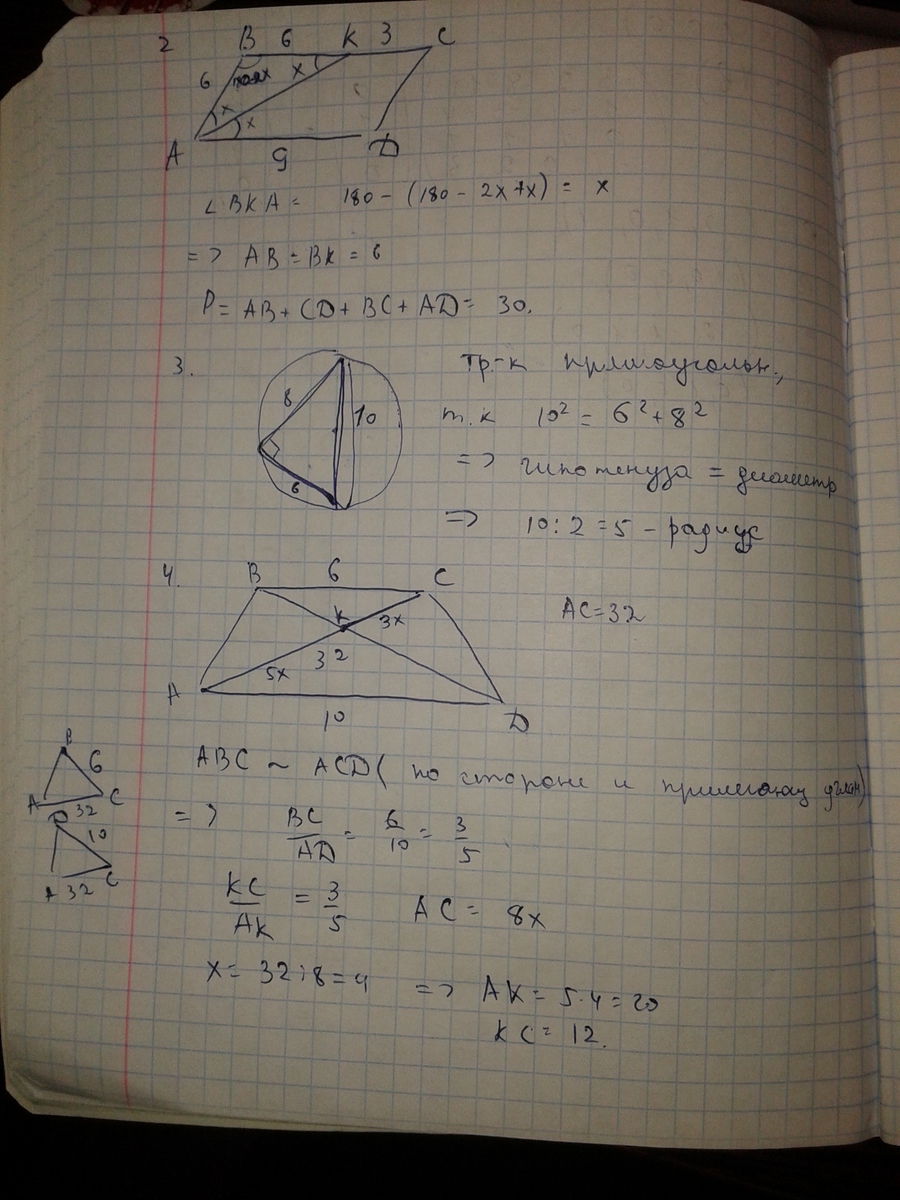 2
B 6 K 3 C
6 x
x
x
A 9 D
∠BKA = 180 - (180 - 2x + x) = x
=> AB = BK = 6
P = AB + CD + BC + AD = 30.
3.
8 10
6
Тр-к прямоугольн.,
т.к 10² = 6² + 8²
=> гипотенуза = диаметр
=> 10:2 = 5 - радиус
4.
B 6 C
K 3x
5x 32
A 10 D
AC = 32
B
6
A 32 C
D
10
A 32 C
ABC ~ ACD ( по стороне и прилегающ углам)
=> BC/AD = 6/10 = 3/5
KC/AK = 3/5 AC = 8x
x = 32:8 = 4 => AK = 5·4 = 20
KC = 12.